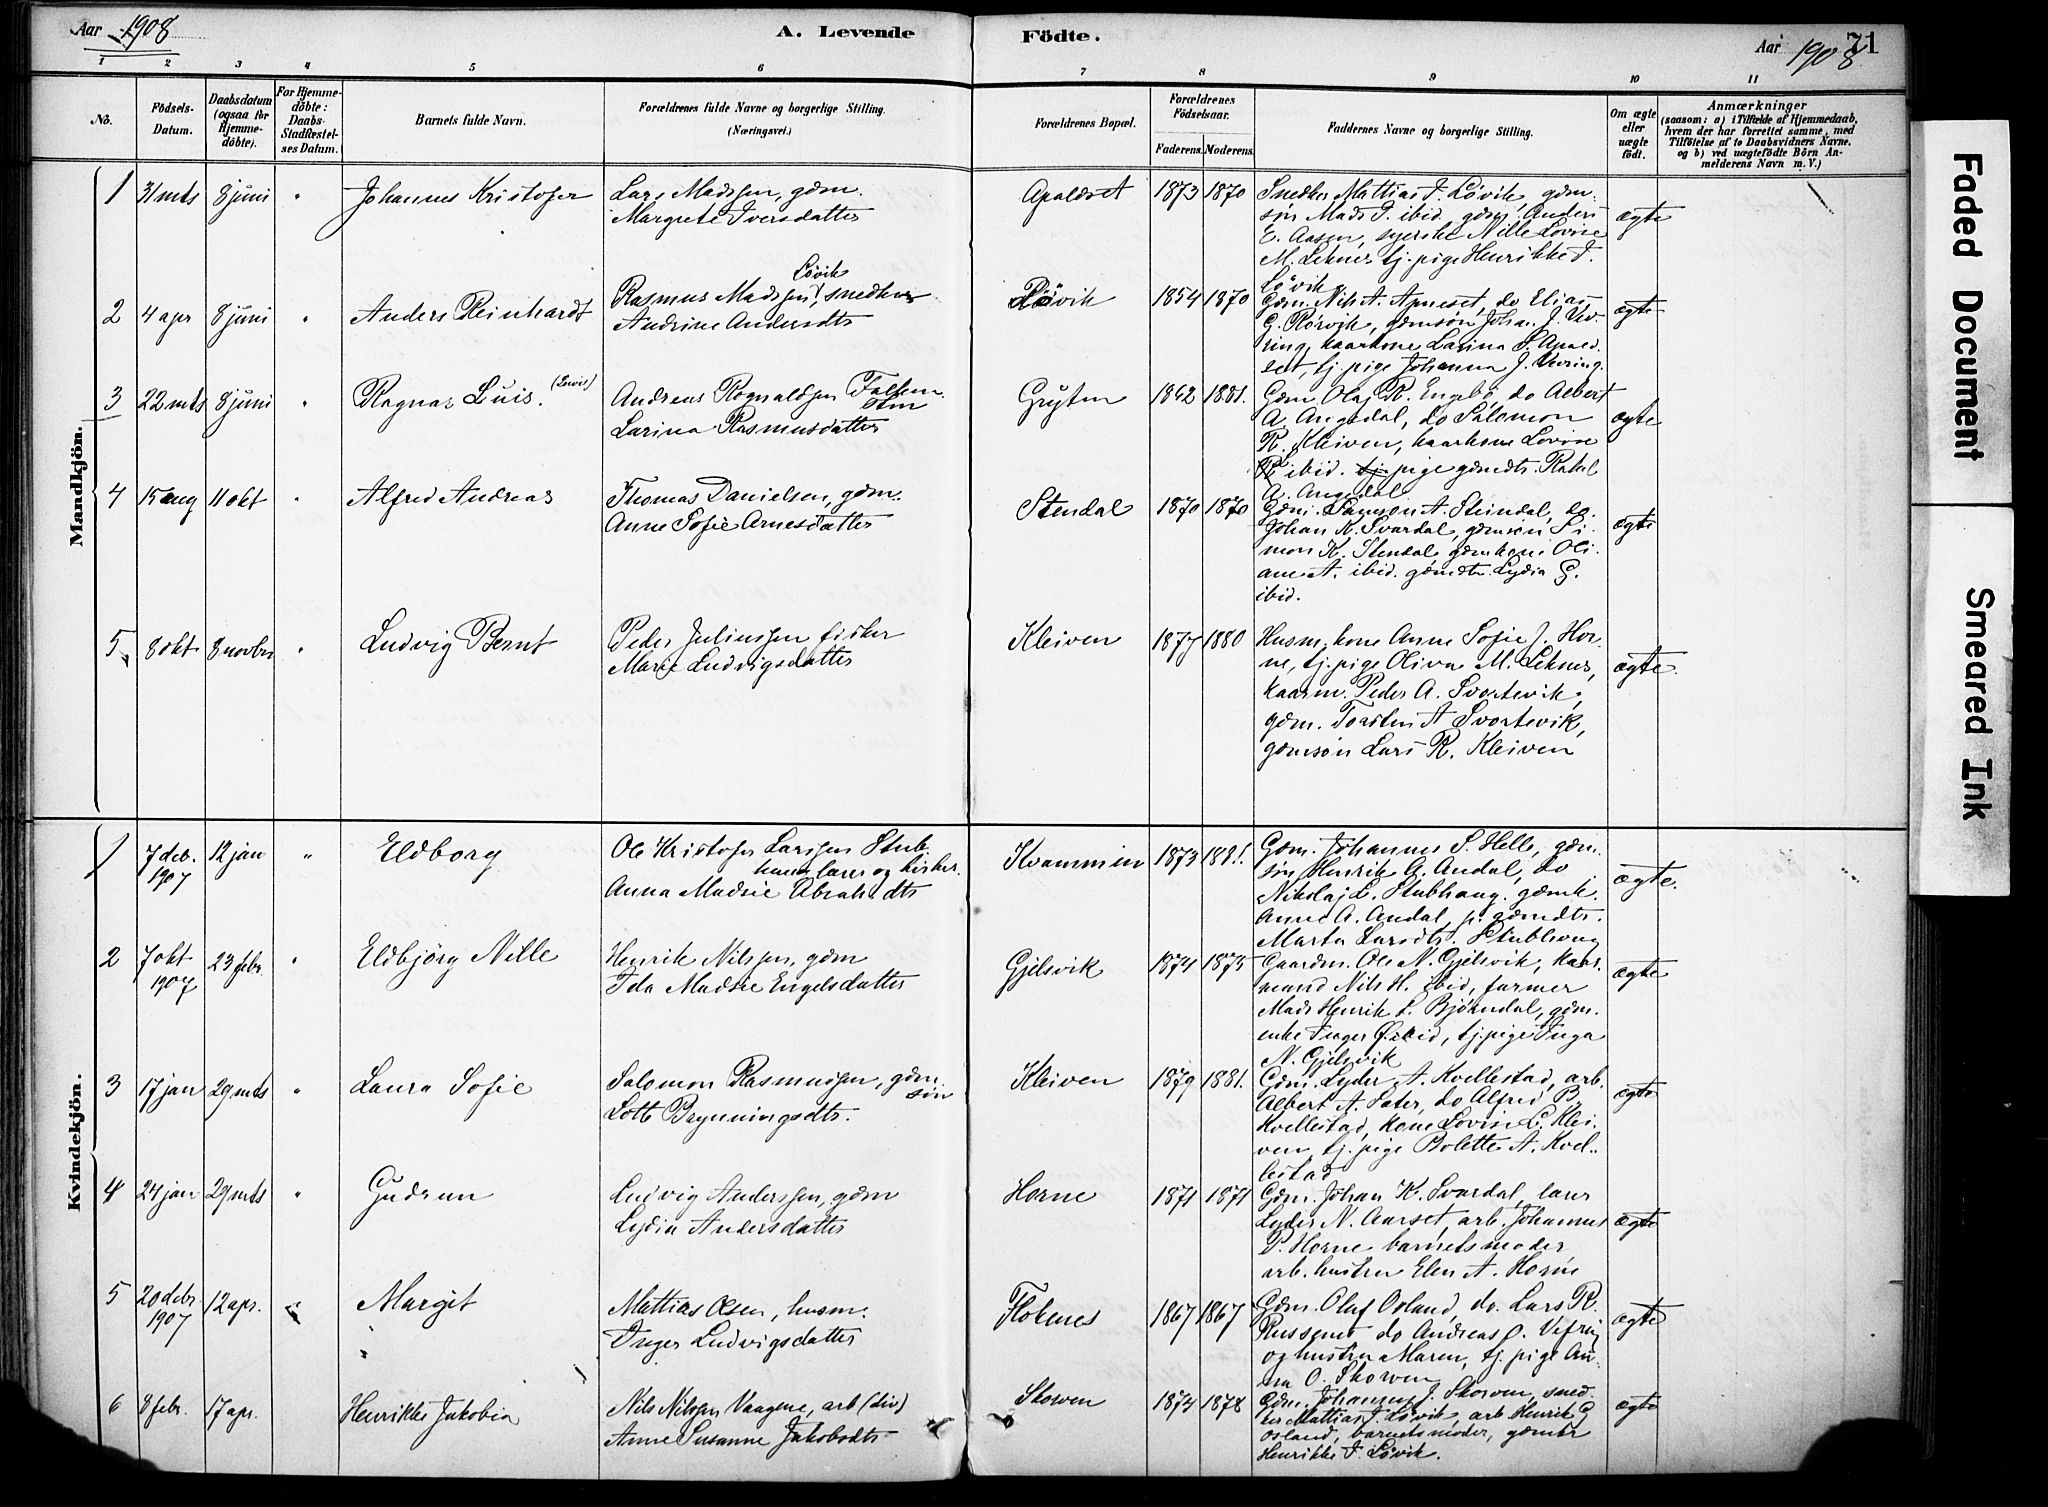 Aar 1908
A. Levende Födte.
Aar 1908
71
1 2 3 4 5 6 7 8 9 10 11
No.
Födsels-Datum.
Daabsdatum (ogsaa for Hjemme-döbte).
For Hjemme-döbte: Daabs-Stadfæstel-ses Datum.
Barnets fulde Navn.
Forældrenes fulde Navne og borgerlige Stilling. (Næringsvei.)
Forældrenes Bopæl.
Forældrenes Födselsaar.
Faderens. Moderens.
Faddernes Navne og borgerlige Stilling.
Om ægte eller uægte födt.
Anmærkninger
(saasom: a) i Tilfælde af Hjemmedaab, hvem der har forrettet samme, med Tilföielse af to Daabsvidners Navne, og b) ved uægtefödte Börn An-melderens Navn m. V.)
Mandkjön.
1 31 mts 8 juni " Johannes Kristofer
Lars Madssen, gdm.
Margrete Iversdatter
Apaldset 1873 1870
Snedker Mattias I. Lövik, gdm.
søn Mads I. ibid. gdm. Anders
E. Aasen, syerske Nille Lovise
M. Leknes tj. pige Henrikke I.
Lövik
ægte
2 4 apr 8 juni " Anders Reinhardt
Rasmus Madssen Lövik, snedker
Andrine Andersdtr
Lövik 1854 1870
Gdm. Nils A. Apneset, do Elias
G. Rörvik, gdmsön Johan J. Vev-
ring, kaarkone Larina S. Apald-
set, tj. pige Johanna J. Vevring.
ægte
3 22 mts 8 juni " Ragnar Luis. (Lovis)
Andreas Rognaldsen
Larina Rasmusdatter
Gryten 1862 1881.
Gdm. Olaj R. Engebö, do Albert
A. Angedal, do Salomon
R. Kleiven, kaarkone Lovise
R ibid. tj. pige gdmdtr. Rakel
A. Angedal
ægte
4 15 aug 11 okt " Alfred Andreas
Thomas Danielsen, gdm.
Anne Sofie Arnesdatter
Stendal 1870 1870
Gdm. Samson A. Steindal, do.
Johan K. Svardal, gdmsön Si-
mon K. Stendal, gdmkone Oli-
ane A. ibid. gdmdtr Lydia G.
ibid.
ægte
5 8 okt 8 novbr " Ludvig Bernt
Peder Juliussen fisker
Marie Ludvigsdatter
Kleiven 1877 1880
Husm. kone Anne Sofie J. Hor-
ne, tj. pige Oliva M. Leknes,
kaarm. Peder A. Svortevik,
gdm. Torsten A Svortevik,
gdmsön Lars R. Kleiven
ægte.
Kvindekjön.
1 7 deb. 1907 12 jan " Eldborg
Ole Kristofer Larssen Stub-
haug lærer og kirkes.
Anna Madsie Abrahdts
Kvammen 1873 1881.
Gdm. Johannes S. Helle, gdm.
sön Henrik G. Andal, do
Nikolaj L. Stubhaug, gdmk.
Anne A. Andal, p. gdmdtr.
Marta Larsdtr. Stubhaug
ægte.
2 7 okt 1907 23 febr. " Eldbjörg Nille
Henrik Nilssen, gdm
Ida Madsie Engelsdatter
Gjelsvik 1874 1875
Gaardm. Ole N. Gjelsvik, kaar-
mand Nils H. ibid, farmer
Mads Henrik L. Bjørndal, gdm.
enke Inger Ø. ibid, tj. pige Inga
N. Gjelsvik
ægte
3 17 jan 29 mts " Laura Sofie
Salomon Rasmussen, gdm.
søn
Lotte Brynningsdtr.
Kleiven 1879 1881.
Gdm. Lyder A. Kvellestad, arb.
Albert A. Sater, do Alfred B.
Kvellestad, kone Lovise L. Klei-
ven, tj. pige Bolette A. Kvel-
lestad
ægte
4 24 jan 29 mts " Gudrun
Ludvig Anderssen, gdm
Lydia Andersdatter
Horne 1871 1871
Gdm. Johan K. Svardal, lærer
Lyder N. Aarset, arb. Johannes
P. Horne barnets moder,
arb. hustru Elen A. Horne
ægte
5 20 debr. 1907 12 apr. " Margit
Mattias Olsen, husm.
Inger Ludvigsdatter
Flokenes 1867 1867
Gdm. Olaf Osland, do. Lars R.
Russenes do Andreas O. Vefring
og hustru Maren, tj. pige An-
na O. Skorven
ægte
6 8 febr. 17 apr. Henrikke Jakobia
Nils Nilssen Vaagene, arb (div)
Anne Susanne Jakobsdtr
Skorven 1874 1878
Gdm. Johannes J. Skorven, sned-
ker Mattias I. Lövik, arb Henrik G
Osland, barnets moder, gdmdtr
Henrikke I. Lövik.
ægte
Faded Document
Smeared Ink